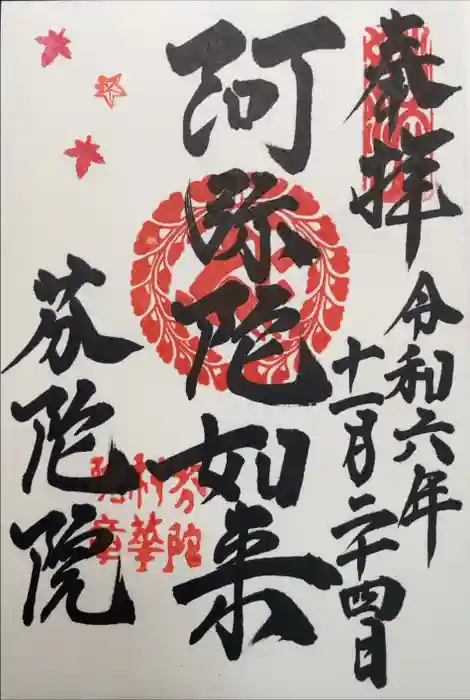 奉拝
令和六年
十一月二十四日
阿弥陀如来
芬陀院
芬陀
村華
院章